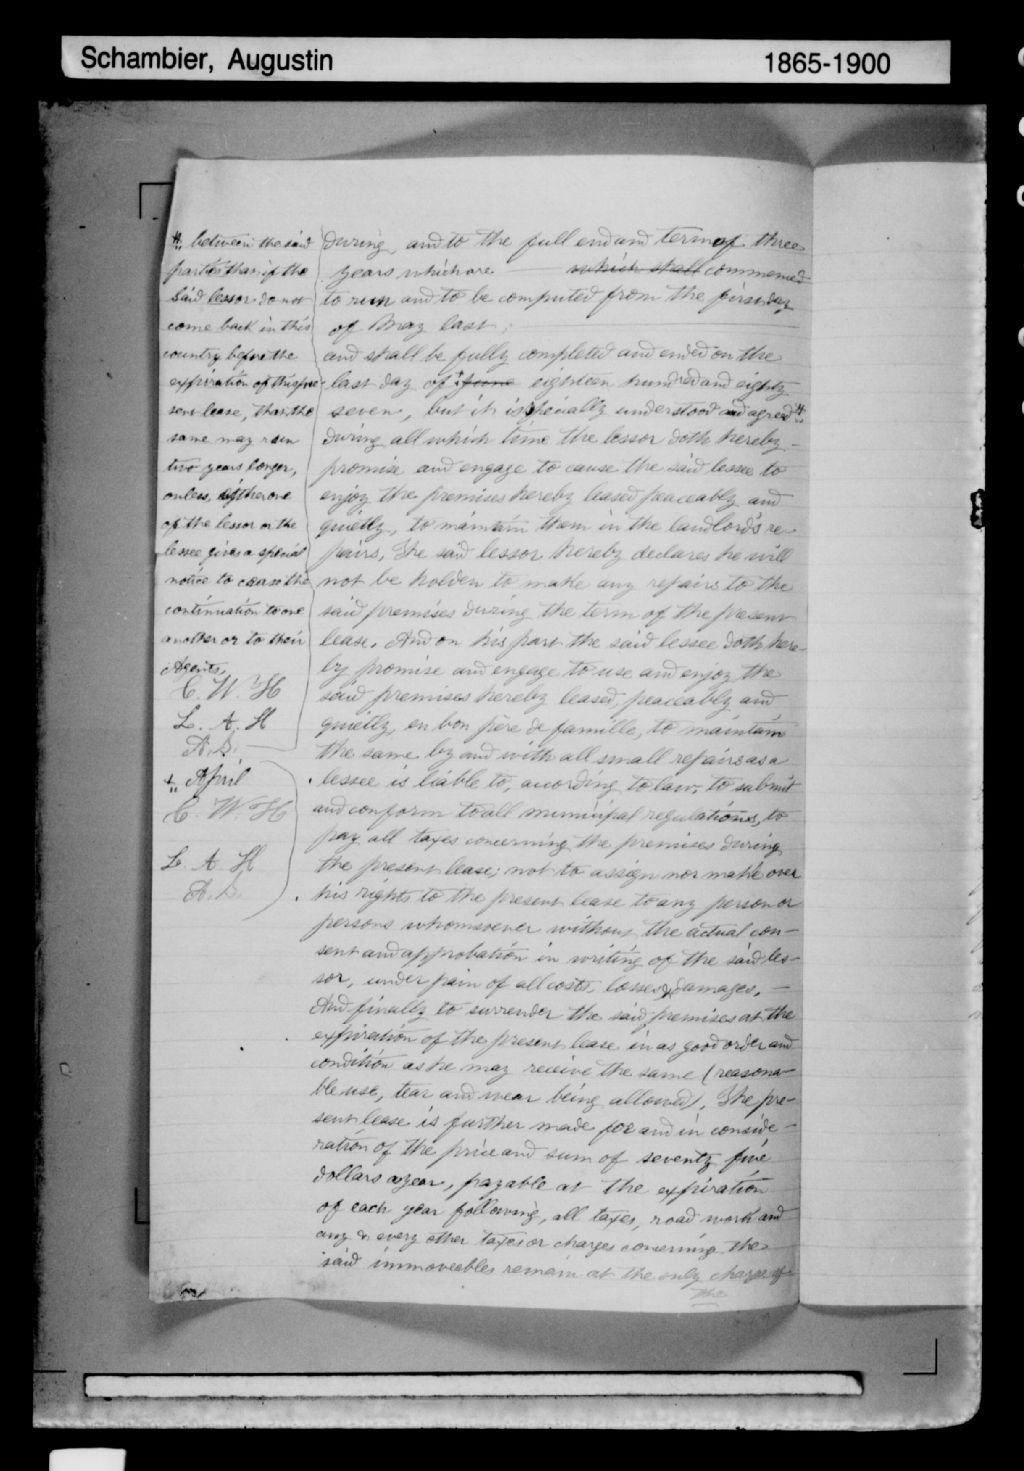 Schambier, Augustin 1865-1900
# between the said
parties that if the
said lessor do not
come back in this
country before the
expiration of this pre-
sent lease, that the
same may run
two years longer,
unless, eitherone
of the lessor or the
lessee gives a special
notice to cease the
continuation to one
another or to their
Agents,
C. W. H
L. A. H
A. S.
+ April
C. W. H
L. A. H
A. S.
During and to the full end and term of three
years which are which shall commenced
to run and to be computed from the first day
of May last;
and shall be fully completed and ended on the
last day of + June eighteen hundred and eighty
seven, but it is specially understood and agreed #
During all which time the lessor doth hereby
promise and engage to cause the said lessee to
enjoy the premises hereby leased peaceably and
quietly, to maintain them in the landlord's re-
pairs, The said lessor hereby declares he will
not be holden to make any repairs to the
said premises during the term of the present
lease. And on his part the said lessee doth here-
by promise and engage to use and enjoy the
said premises hereby leased, peaceably and
quietly, en bon père de famille, to maintain
the same by and with all small repairs as a
lessee is liable to, according to law, to submit
and conform to all municipal regulations, to
pay all taxes concerning the premises during
the present lease; not to assign nor make over
his rights to the present lease to any person or
persons whomsoever without the actual con-
sent and approbation in writing of the said les-
sor, under pain of all costs, losses & damages,
And finally to surrender the said premises at the
expiration of the present lease in as good order and
condition as he may receive the same (reasona-
ble use, tear and wear being allowed). The pre-
sent lease is further made for and in conside-
ration of the price and sum of seventy five
dollars a year, payable at the expiration
of each year following, all taxes, road work and
any & every other taxes or charges concerning the
said immoveables remain at the only charge of
the